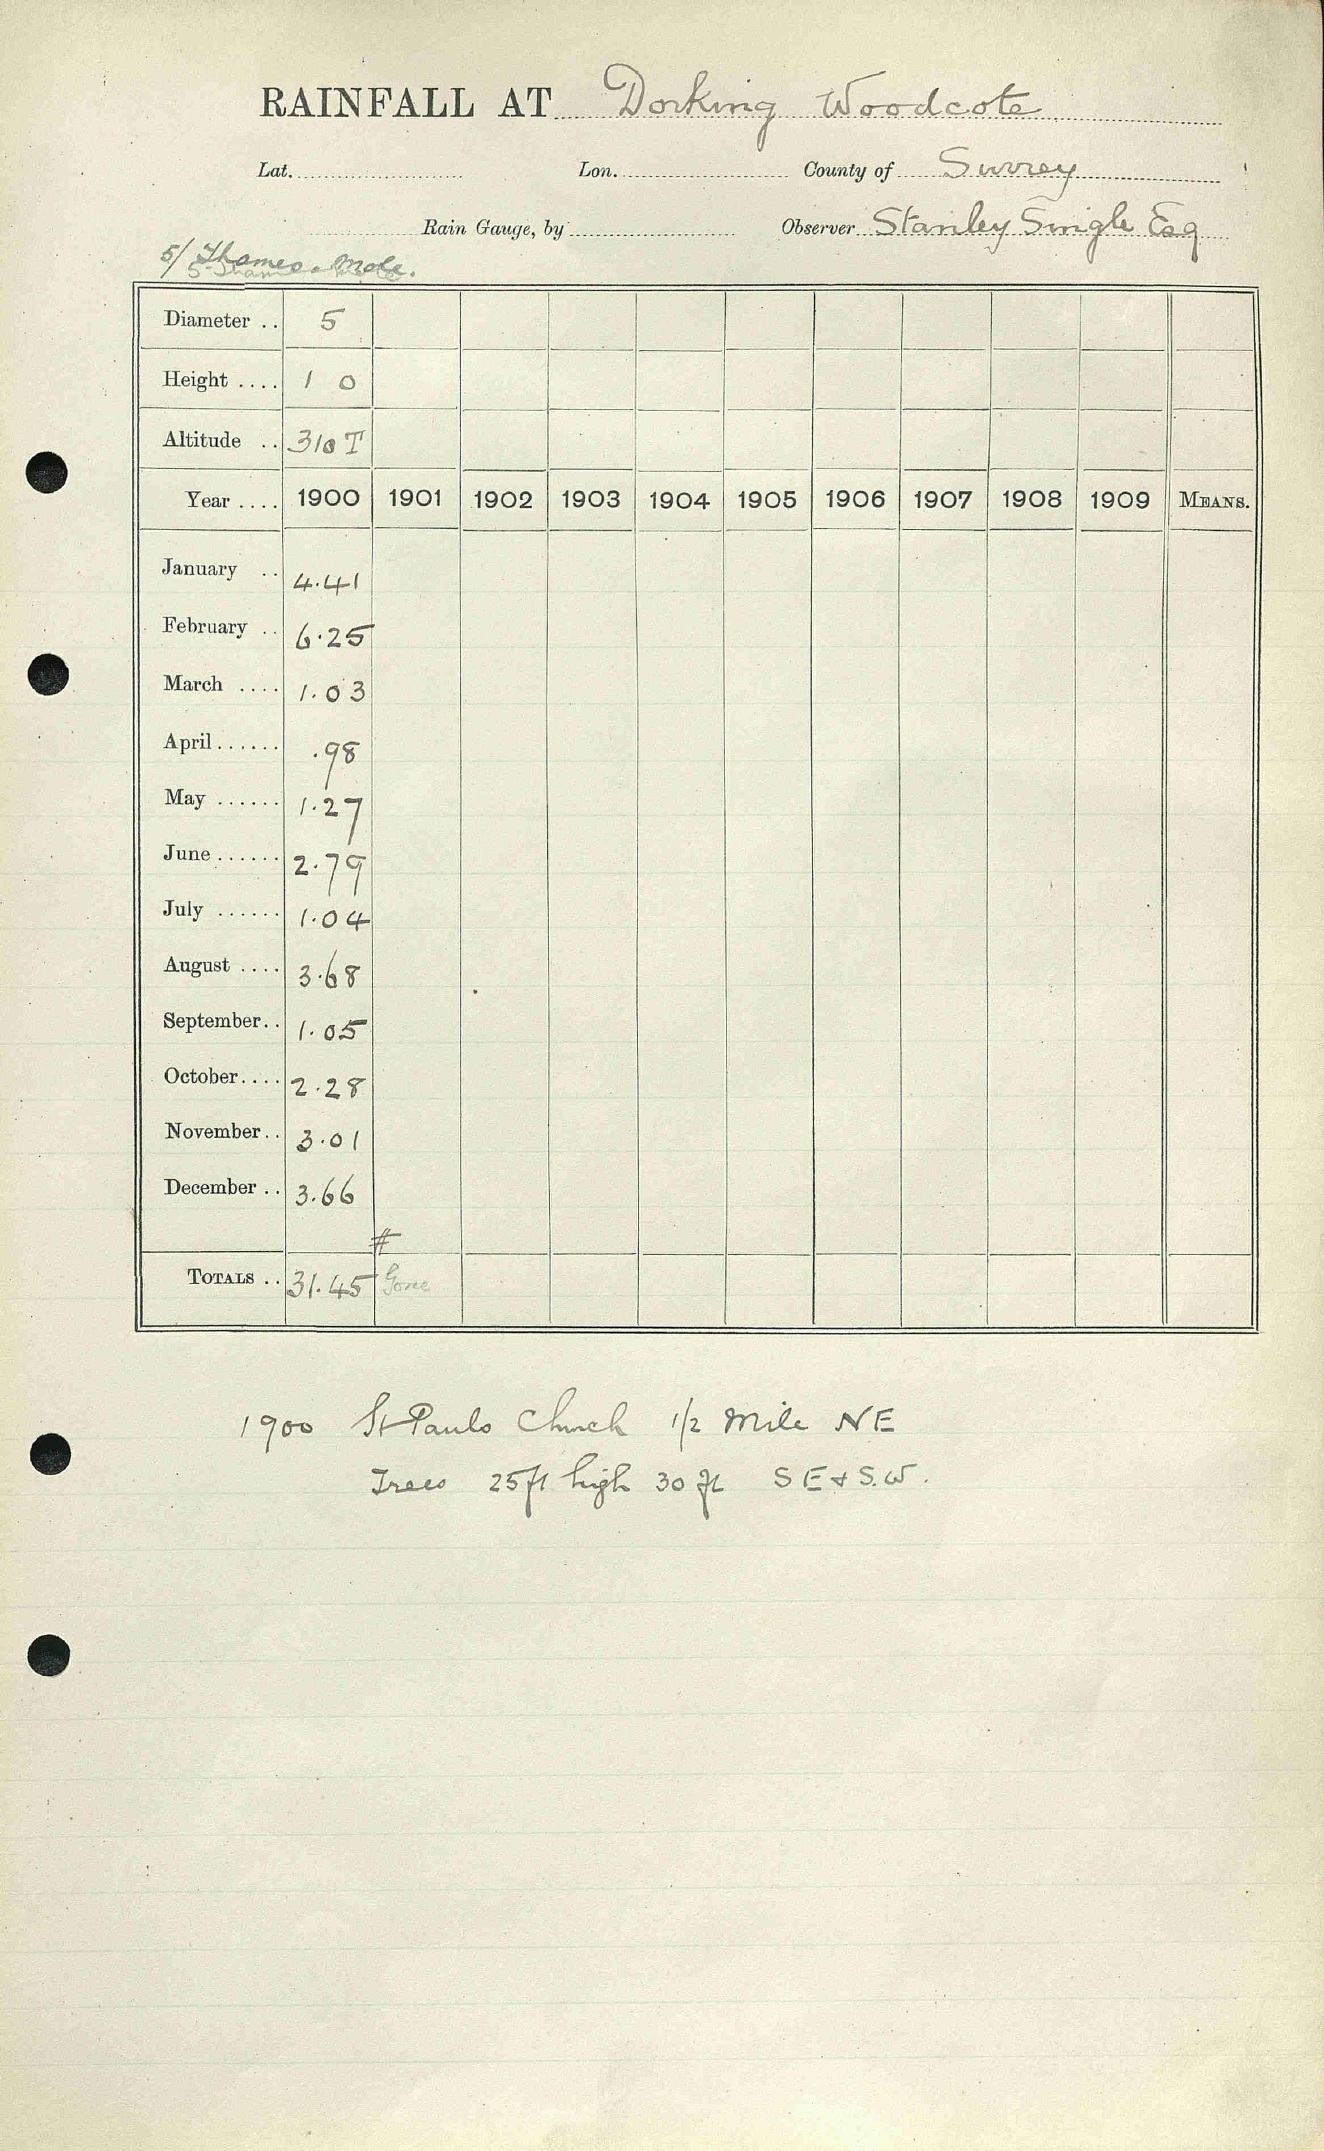 RAINFALL AT Dorking Woodcote
Lat. Lon. County of Surrey
Rain Gauge, by Observer Stanley Single Esq
5/ Thames Mole.
Diameter .. 5
Height .... 1 0
Altitude .. 310 T
Year .... 1900 1901 1902 1903 1904 1905 1906 1907 1908 1909 MEANS.
January .. 4.41
February .. 6.25
March .... 1.03
April ...... .98
May ...... 1.27
June ...... 2.79
July ...... 1.04
August .... 3.68
September.. 1.05
October.... 2.28
November.. 3.01
December .. 3.66
#
TOTALS .. 31.45 Gone
1900 St Pauls Church 1/2 Mile NE
Trees 25ft high 30 ft S E & S.W.